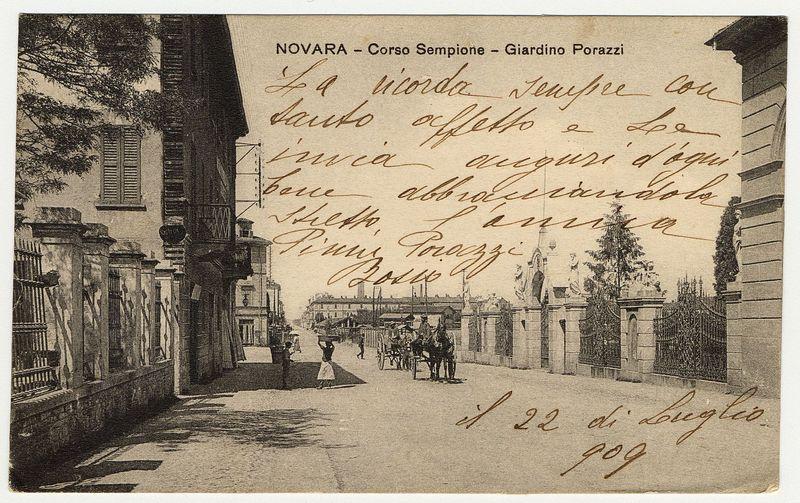 NOVARA – Corso Sempione – Giardino Porazzi
La ricorda sempre con
tanto affetto e Le
invia auguri d'ogni
bene abbracciandola
stretto. L'amica
Pinin Porazzi
Bosso
il 22 di Luglio
909